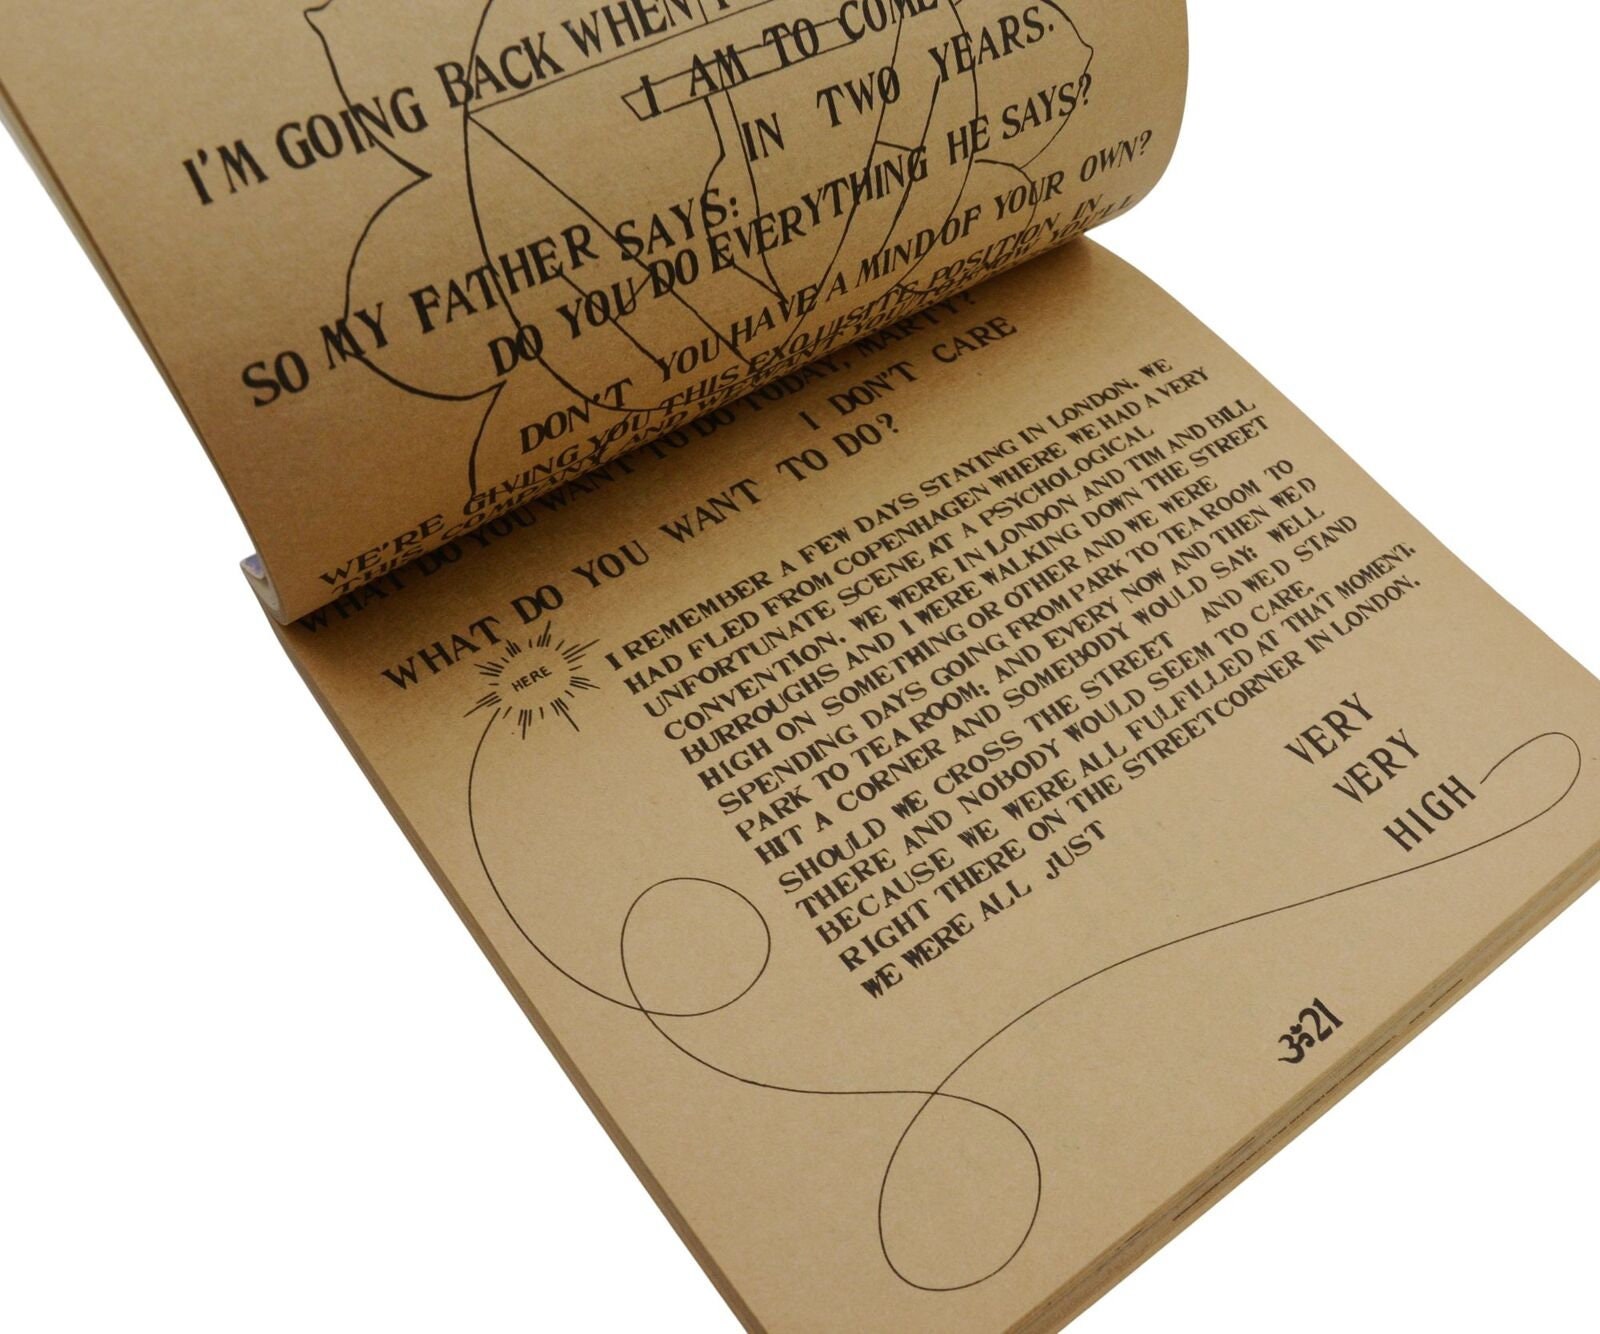 I'M GOING BACK WHEN
I AM TO COME
IN TWO YEARS.
SO MY FATHER SAYS:
DO YOU DO EVERYTHING HE SAYS?
DON'T YOU HAVE A MIND OF YOUR OWN?
WE'RE GIVING YOU THIS EXQUISITE POSITION IN
THIS COMPANY AND WE WANT YOU TO KNOW YOU'LL
WHAT DO YOU WANT TO DO TODAY, MARTY?
I DON'T CARE
WHAT DO YOU WANT TO DO?
HERE
I REMEMBER A FEW DAYS STAYING IN LONDON. WE
HAD FLED FROM COPENHAGEN WHERE WE HAD A VERY
UNFORTUNATE SCENE AT A PSYCHOLOGICAL
CONVENTION. WE WERE IN LONDON AND TIM AND BILL
BURROUGHS AND I WERE WALKING DOWN THE STREET
HIGH ON SOMETHING OR OTHER AND WE WERE
SPENDING DAYS GOING FROM PARK TO TEA ROOM TO
PARK TO TEA ROOM; AND EVERY NOW AND THEN WE'D
HIT A CORNER AND SOMEBODY WOULD SAY: WELL
SHOULD WE CROSS THE STREET AND WE'D STAND
THERE AND NOBODY WOULD SEEM TO CARE.
BECAUSE WE WERE ALL FULFILLED AT THAT MOMENT.
RIGHT THERE ON THE STREETCORNER IN LONDON.
WE WERE ALL JUST
VERY
VERY
HIGH
ॐ21